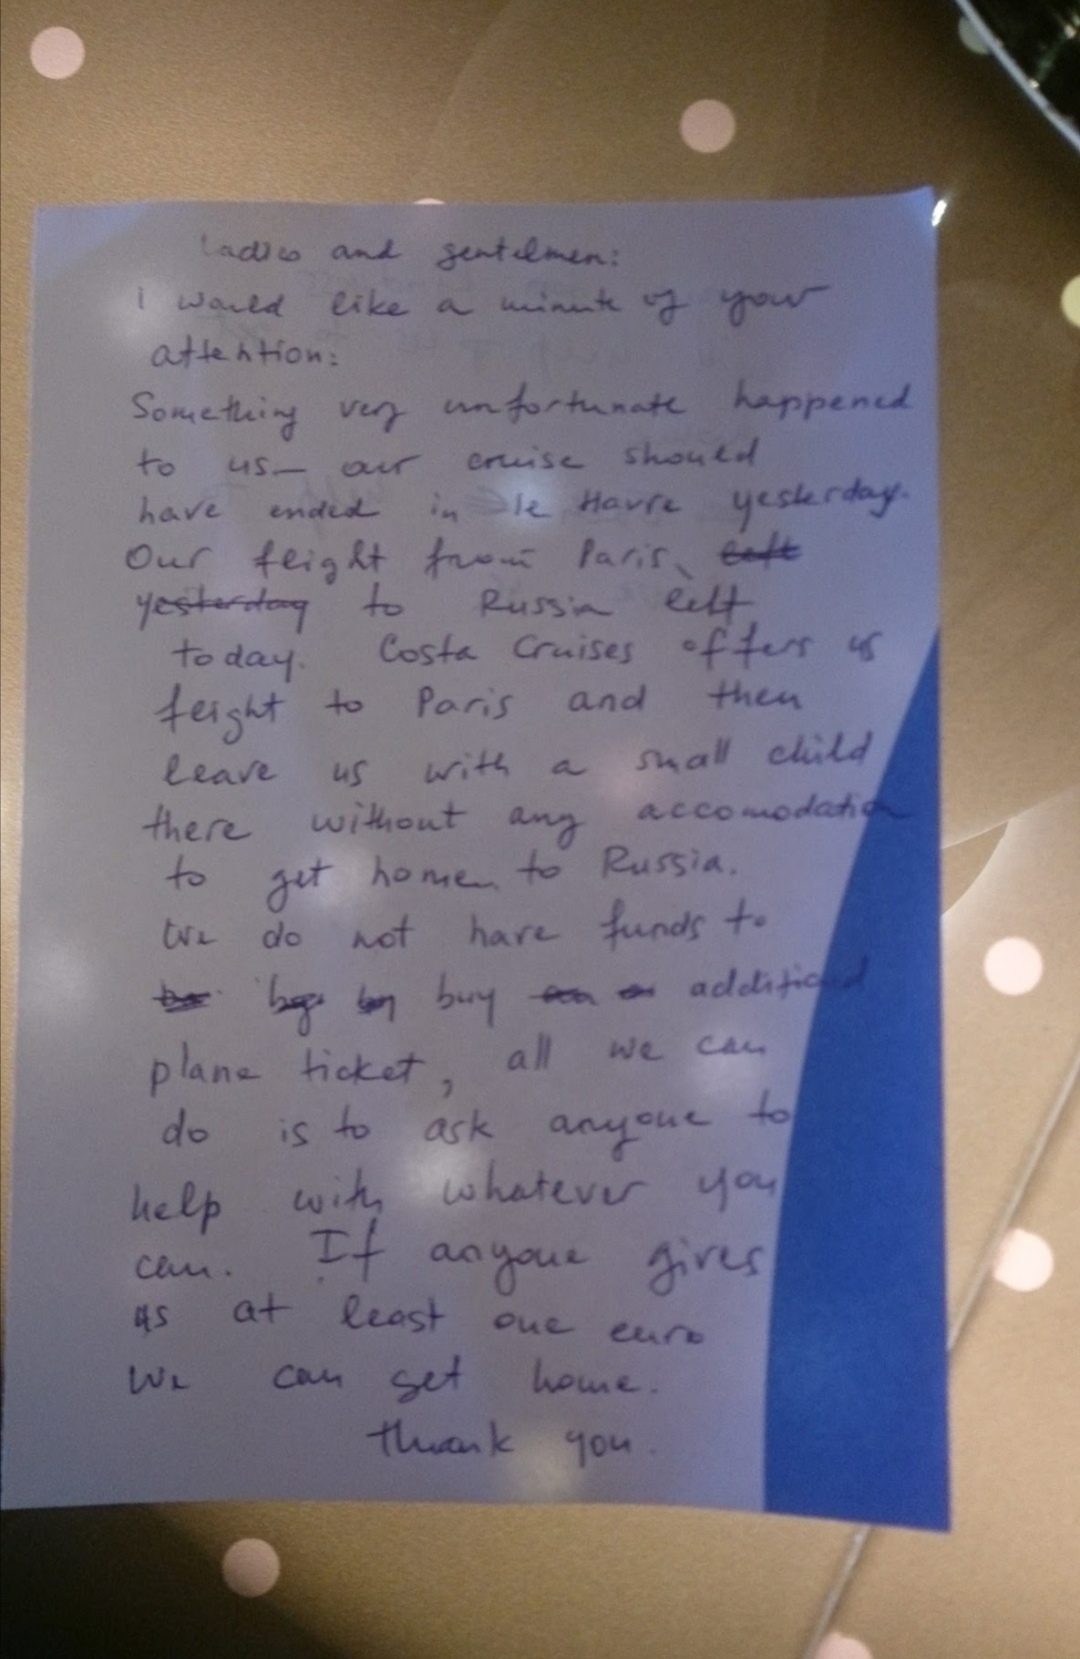 Ladies and gentelmen:
i would like a minute of your
attention:
Something very unfortunate happened
to us— our cruise should
have ended in le Havre yesterday.
Our fleight from Paris, left
yesterday to Russia left
today. Costa Cruises offers us
fleight to Paris and then
leave us with a small child
there without any accomodation
to get home to Russia.
We do not have funds to
buy additional
plane ticket, all we can
do is to ask anyone to
help with whatever you
can. If anyone gives
us at least one euro
we can get home.
thank you.